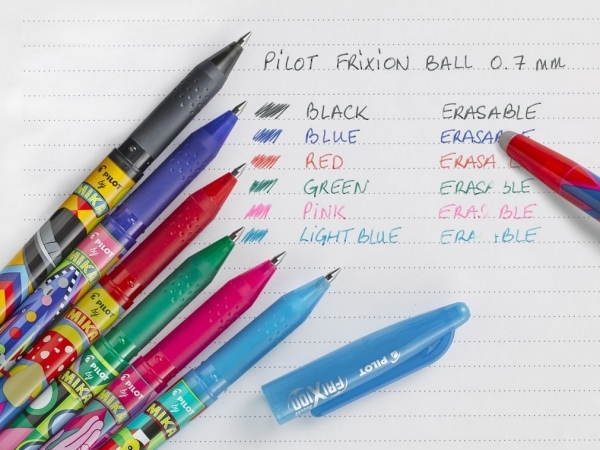 PiLOT FRiXiON BALL 0.7 mm
BLACK ERASABLE
BLUE ERASABLE
RED ERASA LE
GREEN ERASA BLE
PiNK ERAS BLE
LiGHT BLUE ERA BLE
PILOT
by
MIKA
PILOT
by
MIKA
PILOT
by
MIKA
PILOT
by
MIKA
PILOT
by
MIKA
PILOT
by
MIKA
PILOT
FRIXION